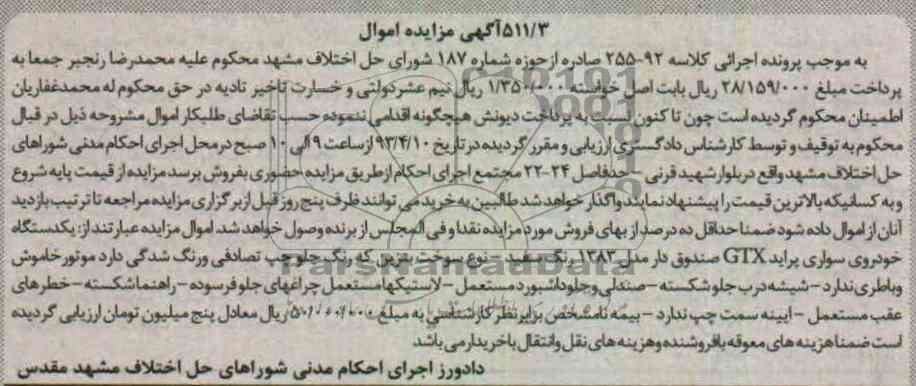 ۵۱۱/۳آگهی مزایده اموال
به موجب پرونده اجرائی کلاسه ۹۲-۲۵۵ صادره از حوزه شماره ۱۸۷ شورای حل اختلاف مشهد محکوم علیه محمدرضا رنجبر جمعا به
پرداخت مبلغ ۲۸/۱۵۹/۰۰۰ ریال بابت اصل خواسته ۱/۳۵۰/۰۰۰ ریال نیم عشر دولتی و خسارت تاخیر تادیه در حق محکوم له محمدغفاریان
اطمینان محکوم گردیده است چون تا کنون نسبت به پرداخت دیونش هیچگونه اقدامی ننموده حسب تقاضای طلبکار اموال مشروحه ذیل در قبال
محکوم به توقیف و توسط کارشناس دادگستری ارزیابی و مقرر گردیده در تاریخ ۹۳/۴/۱۰ از ساعت ۹ الی ۱۰ صبح در محل اجرای احکام مدنی شوراهای
حل اختلاف مشهد واقع در بلوار شهید قرنی - حدفاصل ۲۴-۲۲ مجتمع اجرای احکام از طریق مزایده حضوری بفروش برسد مزایده از قیمت پایه شروع
و به کسانیکه بالاترین قیمت را پیشنهاد نمایند واگذار خواهد شد طالبین به خرید می توانند ظرف پنج روز قبل از برگزاری مزایده مراجعه تا ترتیب بازدید
آنان از اموال داده شود ضمنا حداقل ده درصد از بهای فروش مورد مزایده نقدا و فی المجلس از برنده وصول خواهد شد. اموال مزایده عبارتند از: یکدستگاه
خودروی سواری پراید GTX صندوق دار مدل ۱۳۸۳ رنگ سفید - نوع سوخت بنزین که رنگ جلو چپ تصادفی ورنگ شدگی دارد موتور خاموش
وباطری ندارد - شیشه درب جلو شکسته - صندلی وجلوداشبورد مستعمل - لاستیکها مستعمل چراغهای جلو فرسوده - راهنما شکسته - خطرهای
عقب مستعمل - ایینه سمت چپ ندارد - بیمه نامشخص برابر نظر کارشناسی به مبلغ ۵۰/۰۰۰/۰۰۰ ریال معادل پنج میلیون تومان ارزیابی گردیده
است ضمنا هزینه های معوقه بافروشنده وهزینه های نقل وانتقال باخریدار می باشد
دادورز اجرای احکام مدنی شوراهای حل اختلاف مشهد مقدس
ParsNamadData